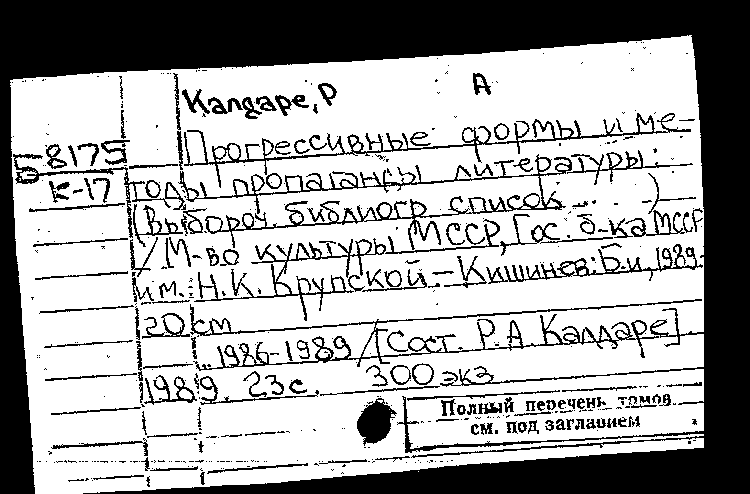 Калдаре, Р А
Б 8175
К-17
Прогрессивные формы и ме-
тоды пропаганды литературы:
(Выбороч. библиогр список ... )
/ М-во культуры МССР, Гос. б-ка МССР
им. Н.К. Крупской.- Кишинев: Б.и, 1989.-
20 см
... 1986-1989 / [Сост. Р.А. Калдаре].
1989. 23с. 300 экз
Полный перечень томов
см. под заглавием